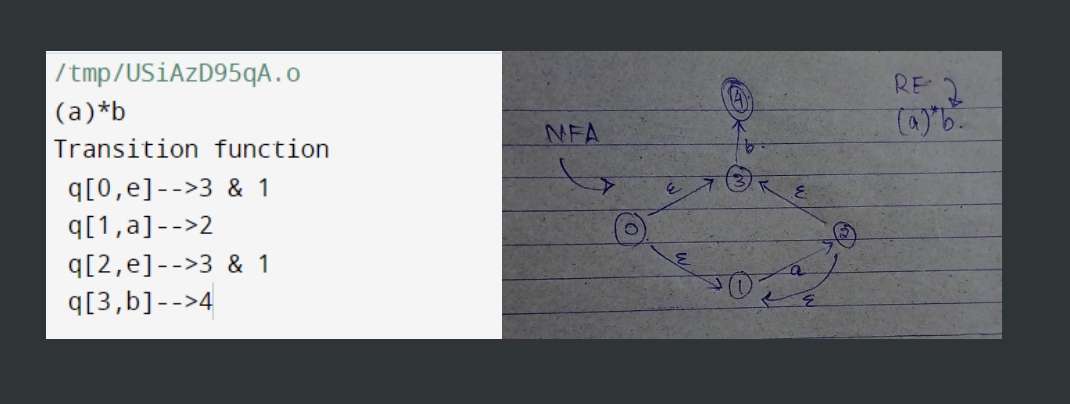 /tmp/USiAzD95qA.o
(a)*b
Transition function
q[0,e]-->3 & 1
q[1,a]-->2
q[2,e]-->3 & 1
q[3,b]-->4
RE
(a)*b.
NFA
4
b
ε 3 ε
0 2
ε a
1 ε